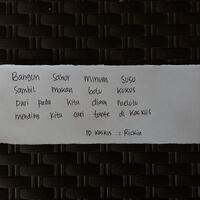 Bangun Sahur minum susu
Sambil makan bolu kukus
Dari pada kita diam melulu
mending kita cari tante di Kaskus
ID kaskus : Rickin